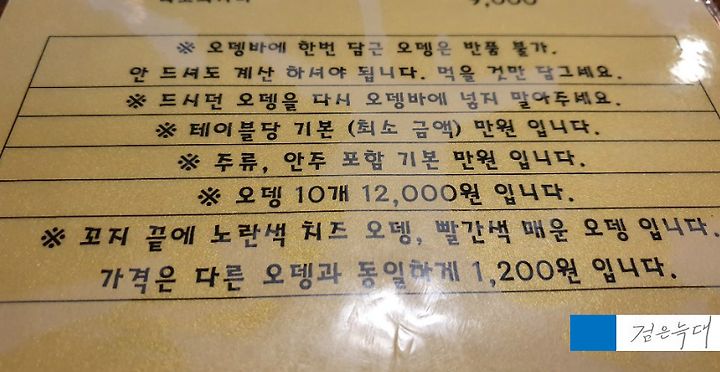 9,000
※ 오뎅바에 한번 담근 오뎅은 반품 불가.
안 드셔도 계산 하셔야 됩니다. 먹을 것만 담그세요.
※ 드시던 오뎅을 다시 오뎅바에 넣지 말아주세요.
※ 테이블당 기본 (최소 금액) 만원 입니다.
※ 주류, 안주 포함 기본 만원 입니다.
※ 오뎅 10개 12,000원 입니다.
※ 꼬지 끝에 노란색 치즈 오뎅, 빨간색 매운 오뎅 입니다.
가격은 다른 오뎅과 동일하게 1,200원 입니다.
검은늑대